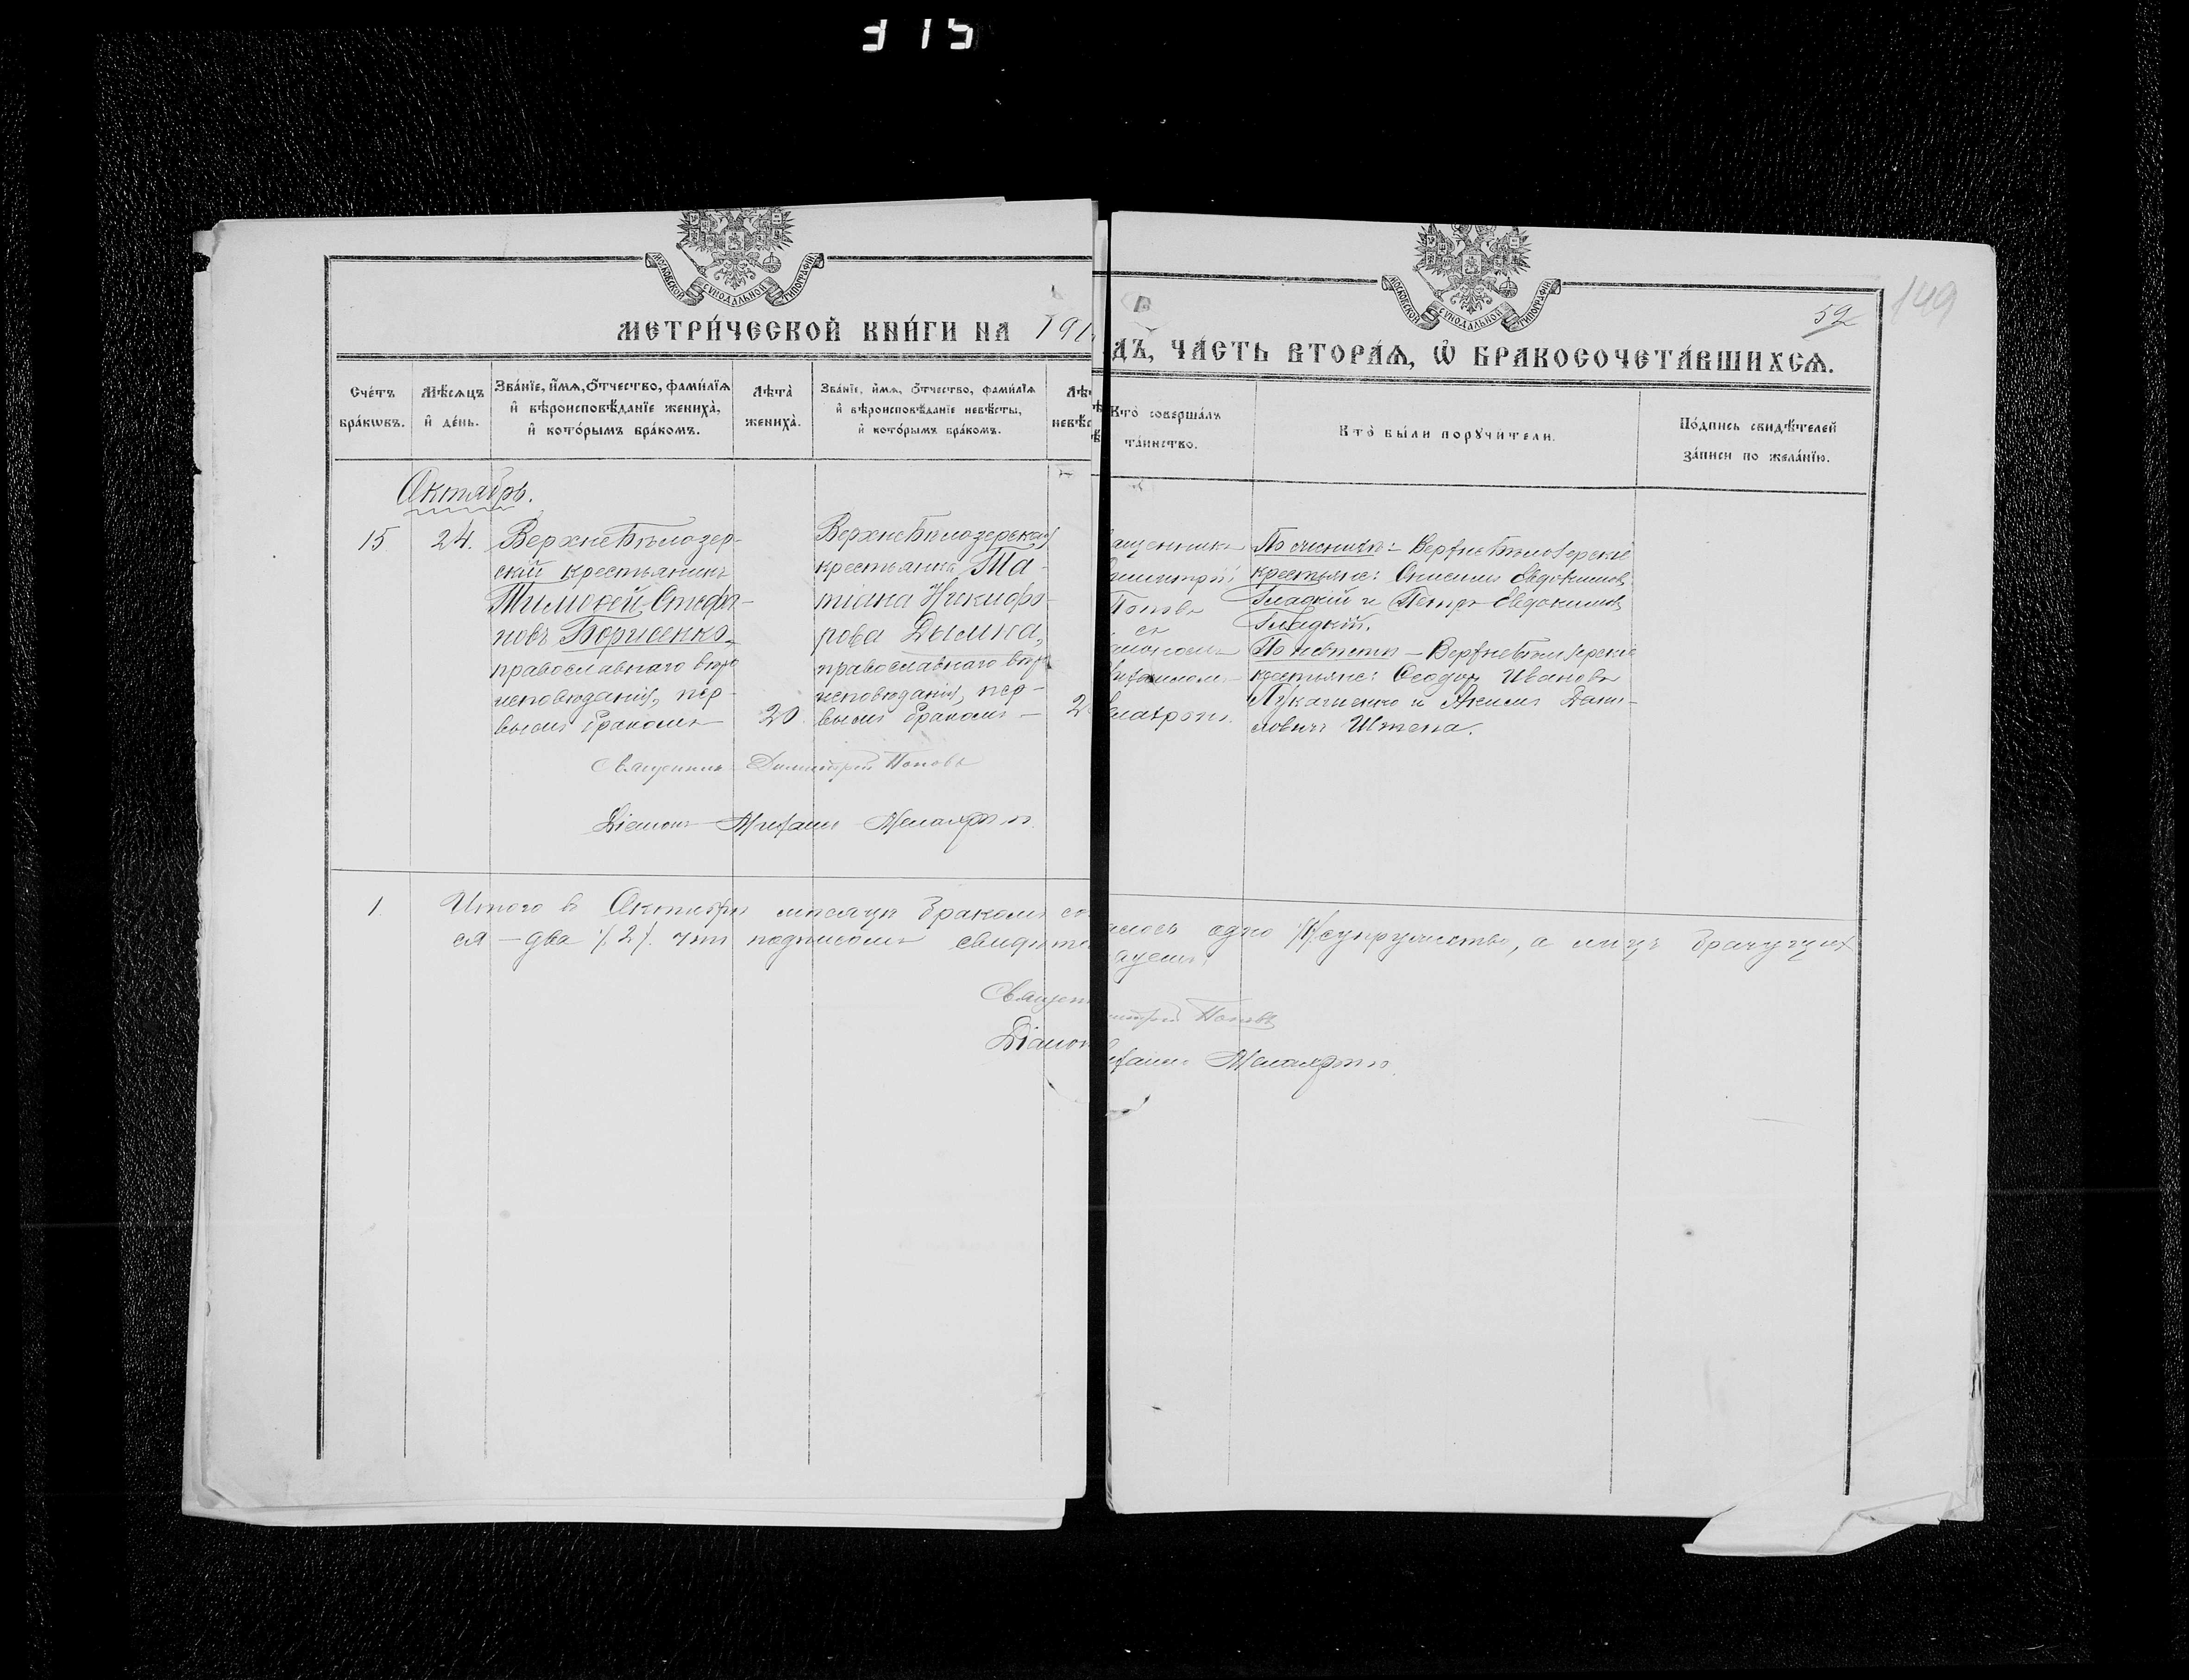 315
МОСКОВСКОЙ СѴНОДАЛЬНОЙ ТИПОГРАФІИ
МОСКОВСКОЙ СѴНОДАЛЬНОЙ ТИПОГРАФІИ
149
59
МЕТРИ́ЧЕСКОЙ КНИ́ГИ НА 191
ДЪ, ЧА́СТЬ ВТОРА́Ѧ, Ѡ҆ БРАКОСОЧЕТА́ВШИХСѦ.
Сче́тъ бра́кѡвъ.
Мѣ́сѧцъ и҆ де́нь.
Зва́нїе, и҆́мѧ, ѻ҆́тчество, фами́лїѧ
и҆ вѣроисповѣ́данїе жениха̀,
и҆ кото́рымъ бра́комъ.
Лѣ́та̀ жениха̀.
Зва́нїе, и҆́мѧ, ѻ҆́тчество, фами́лїѧ
и҆ вѣроисповѣ́данїе невѣ́сты,
и҆ кото́рымъ бра́комъ.
Кто̀ соверша́лъ
та́инство.
Кто̀ бы́ли порꙋчи́тели.
По́дпись свидѣ́телей
за́писи по жела́нїю.
Октябрь.
15
24.
ВерхнеБѣлозер-
скій крестьянинъ
Тимоѳей Стефа-
новъ Борисенко,
православнаго вѣро
исповѣданія, пер-
вымъ бракомъ
20.
ВерхнеБѣлозерская
крестьянка Та-
тіана Никифо-
рова Дымна,
православнаго вѣро
исповѣданія, пер-
вымъ бракомъ —
2
ащенникъ
имитрій
Поповъ
съ
По женихѣ: ВерхнеБѣлозерскіе
крестьяне: Онисимъ Евдокимовъ
Гладкій и Петръ Евдокимовъ
Гладкій.
По невѣстѣ — ВерхнеБѣлозерскіе
крестьяне: Ѳеодоръ Ивановъ
Лукашенко и Акимъ Дани-
ловичъ Штепа.
Священникъ Димитрій Поповъ
Діаконъ Михаилъ
1.
Итого въ Октябрѣ мѣсяцѣ бракомъ со
алось одно /1/ супружество, а лицъ брачущих
ся — два /2/. что подписомъ свидѣте
Священ
итрій Поповъ
Діакон
ихаилъ